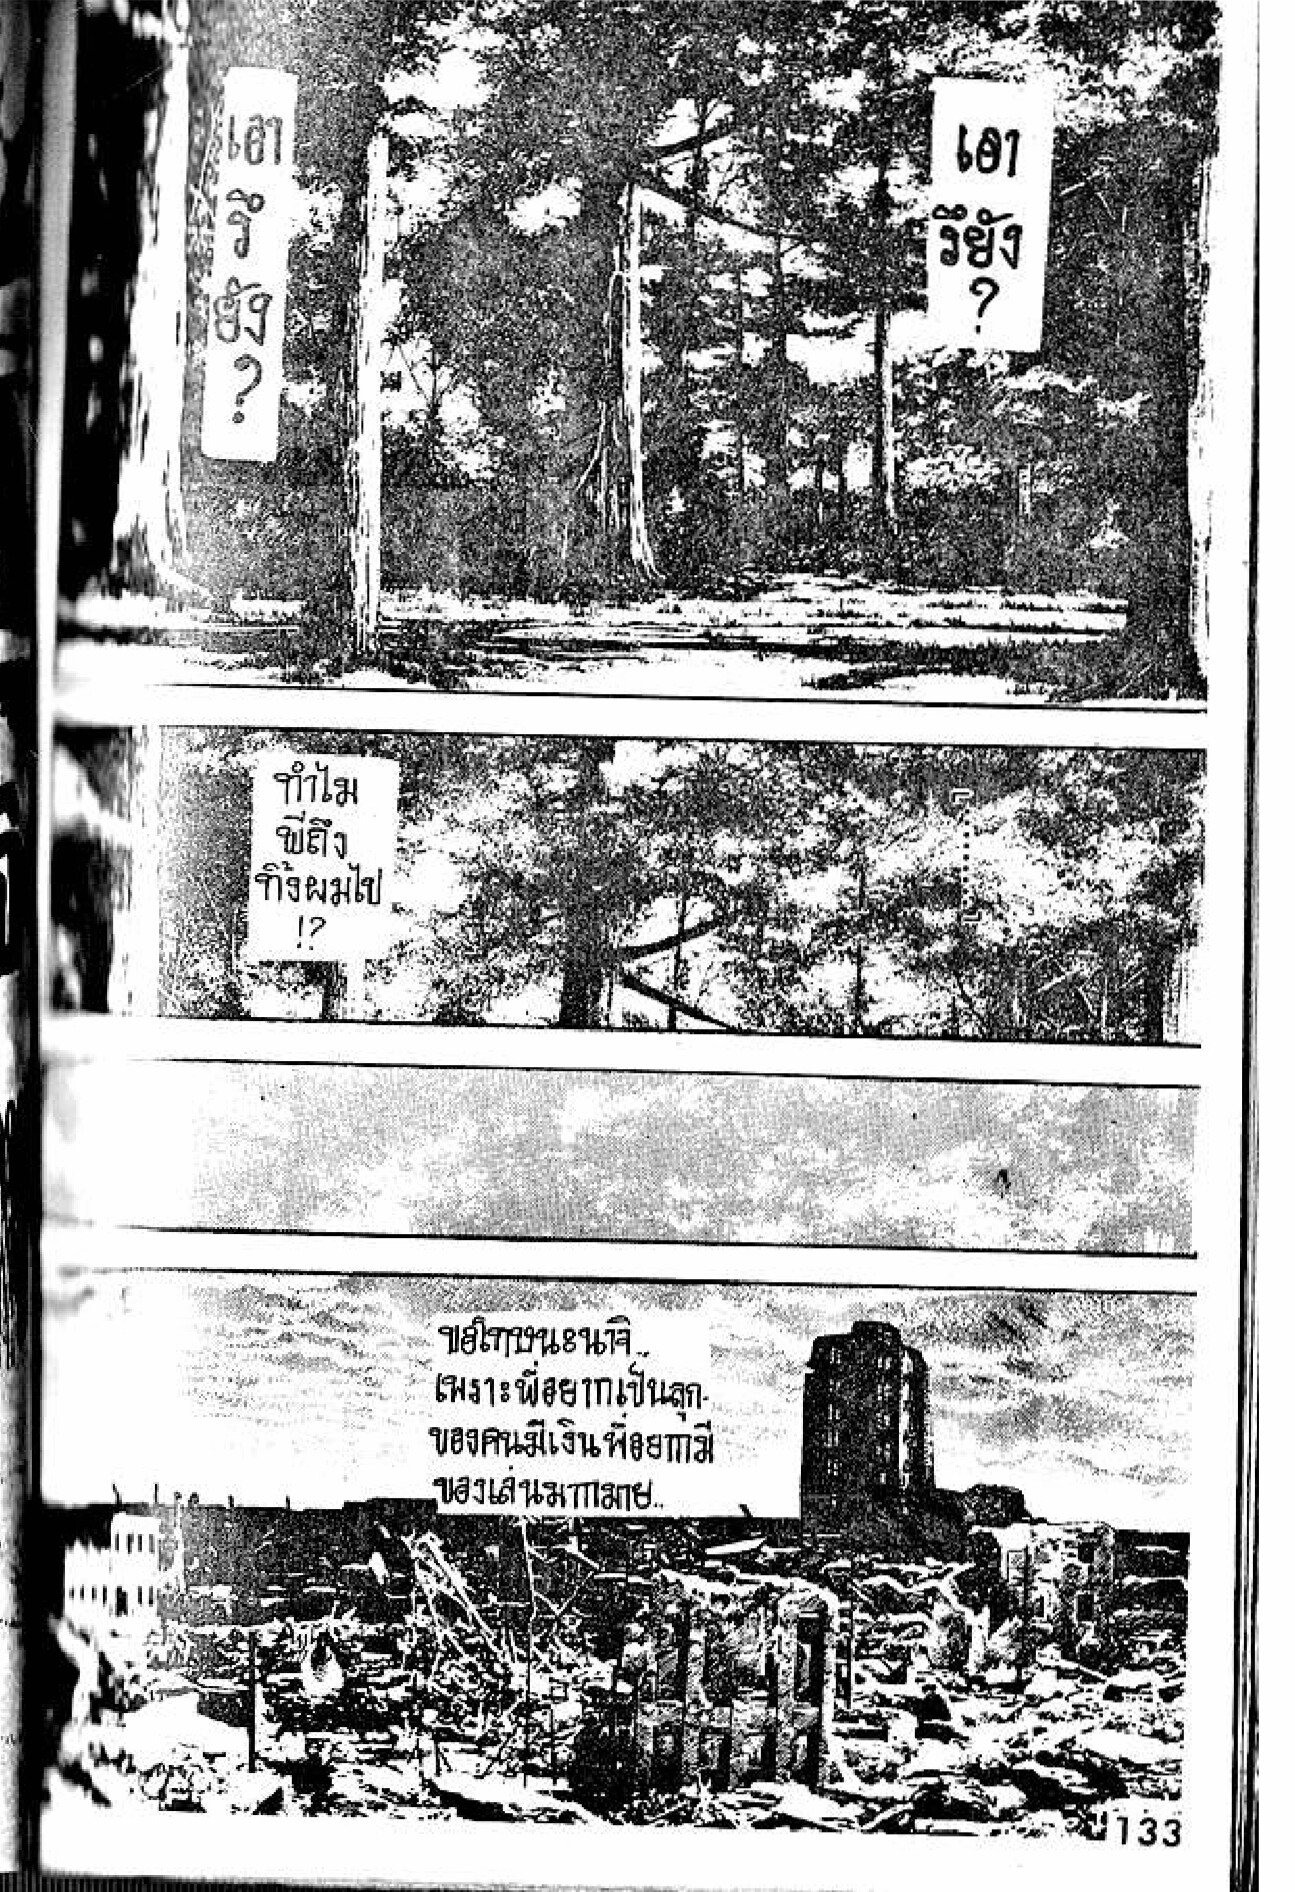 เอา
รึยัง
?
เอา
รึ
ยัง
?
ทำไม
พี่ถึง
ทิ้งผมไป
!?
ขอโทษนะนาจิ..
เพราะพี่อยากเป็นลูก
ของคนมีเงิน พี่อยากมี
ของเล่นมากมาย..
133